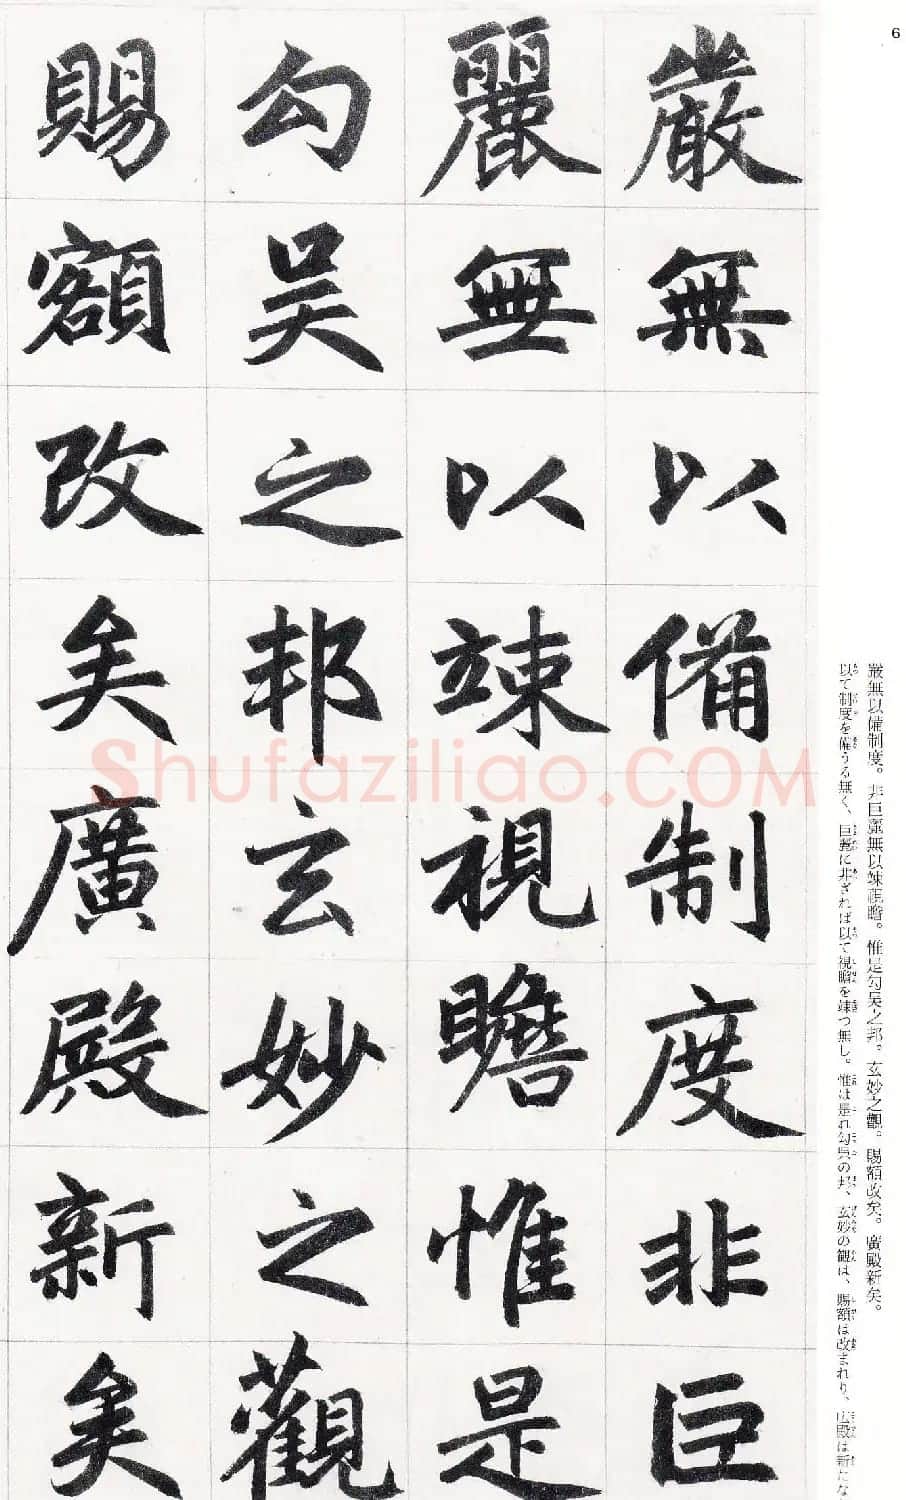 6
嚴無以備制度非巨
麗無以竦視瞻惟是
勾吴之邦玄妙之觀
賜額改矣廣殿新矣
嚴無以備制度。非巨麗無以竦視瞻。惟是勾吳之邦。玄妙之觀。賜額改矣。廣殿新矣。
以て制度を備うる無く、巨麗に非ざれば以て視瞻を竦つ無し。惟は是れ勾呉の邦、玄妙の観は、賜額は改まれり、広殿は新たな
Shufaziliao.COM